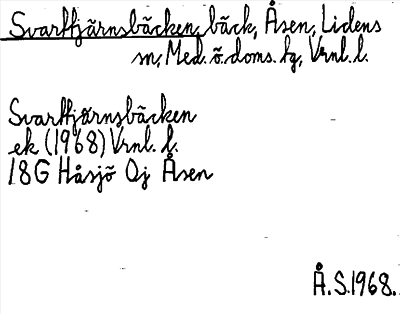 Svarttjärnsbäcken, bäck, Åsen, Lidens
sn, Med. ö. doms. hg, Vrnl. l.
Svarttjärnsbäcken
ek (1968) Vrnl. l.
18G Håsjö Oj Åsen
Å.S.1968.